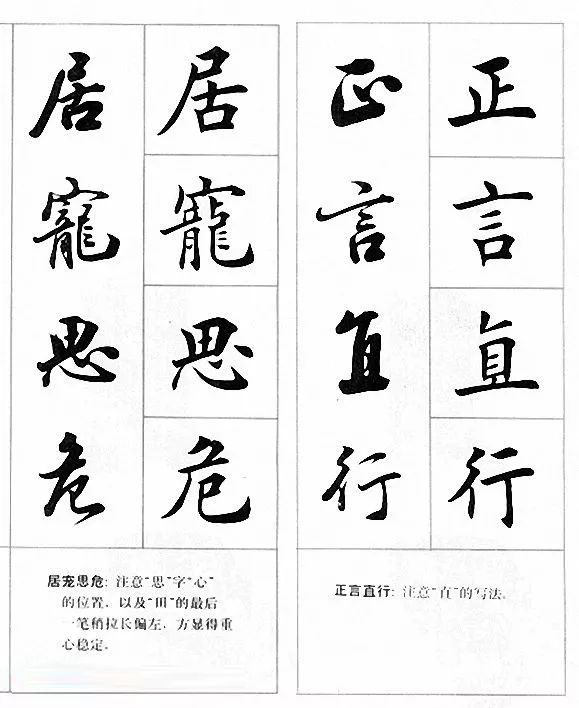 正言直行
正言直行
正言直行: 注意“直”的写法。
居寵思危
居寵思危
居宠思危: 注意“思”字“心”
的位置，以及“田”的最后
一笔稍拉长偏左，方显得重
心稳定。